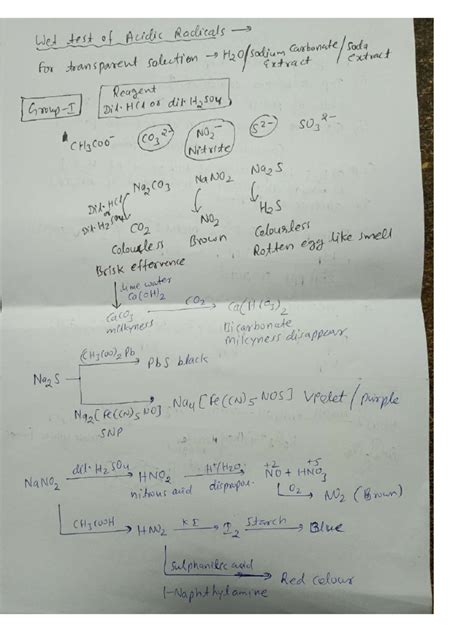 Wet test of Acidic Radicals →
For transparent solution → H2O/Sodium Carbonate Extract/Soda Extract
Group-I
Reagent
Dil·HCl or dil·H2SO4
CH3COO⁻ CO3²⁻ NO2⁻ S²⁻ SO3²⁻
Nitrite
Na2CO3 NaNO2 Na2S
Dil·HCl
or
Dil·H2SO4
CO2 NO2 H2S
Colourless Brown Colourless
Brisk effervence Rotten egg like smell
lime water
Ca(OH)2
CaCO3 CO2 → Ca(HCO3)2
milkyness Bicarbonate
milkyness disappear
Na2S
(CH3COO)2Pb → PbS black
Na2[Fe(CN)5NO] → Na4[Fe(CN)5NOS] Violet/purple
SNP
NaNO2 dil·H2SO4 → HNO2 H⁺/H2O → +2 NO + +5 HNO3
nitrous acid dispropor.
O2 → NO2 (Brown)
CH3COOH → HNO2 KI → I2 Starch → Blue
Sulphanilic acid → Red colour
1-Naphthylamine